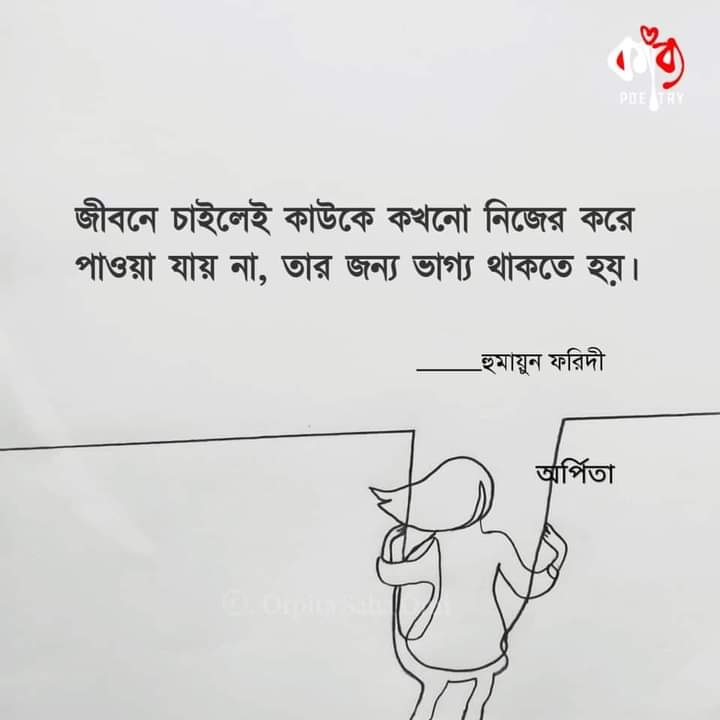 কাব্য
POETRY
জীবনে চাইলেই কাউকে কখনো নিজের করে
পাওয়া যায় না, তার জন্য ভাগ্য থাকতে হয়।
_____হুমায়ুন ফরিদী
অর্পিতা